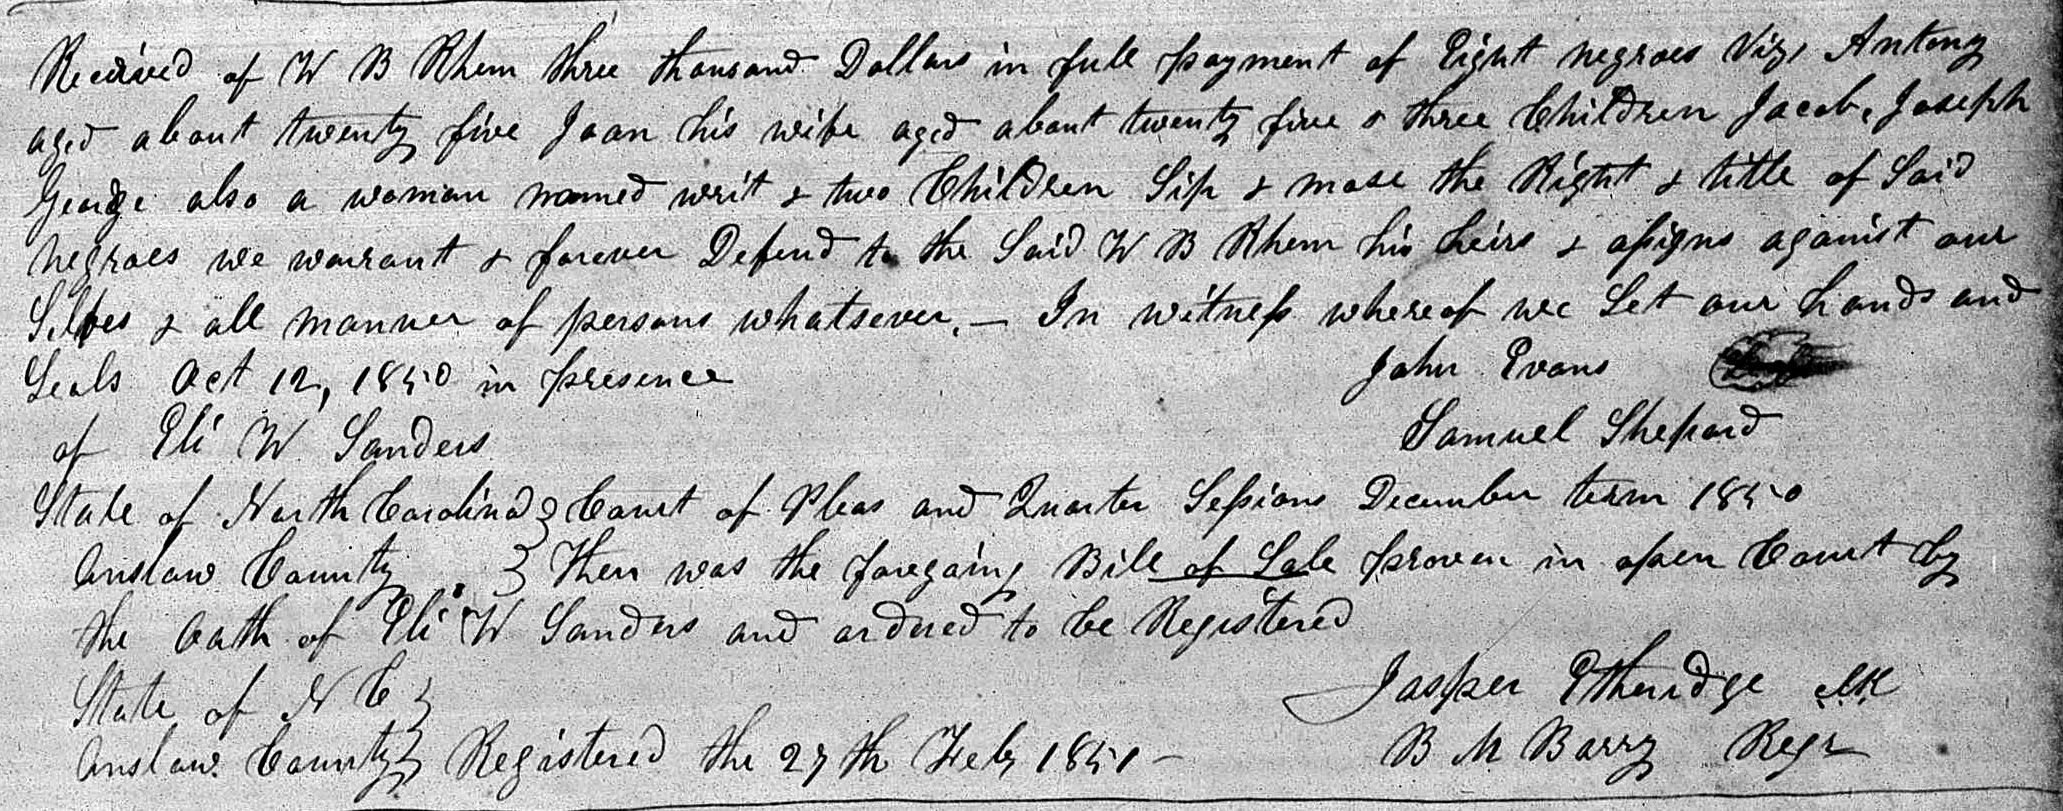 Received of W B Rhem three thousand Dollars in full payment of Eight negroes Viz, Antony
aged about twenty five Joan his wife aged about twenty five & three Children Jacob, Joseph
George also a woman named writ & two Children Sip & mose the Right & title of Said
negroes we warrant & forever Defend to the Said W B Rhem his heirs & assigns against our
Selves & all manner of persons whatsever. — In witness whereof we Set our hands and
Seals Oct 12, 1850 in presence John Evans
of Eli W Sanders Samuel Shepard
State of North Carolina } Court of Pleas and Quarter Sessions December term 1850
Onslow County } Then was the foregoing Bill of Sale proven in open Court by
the Oath of Eli W Sanders and ordered to be Registered
State of N C } Jasper Etheridge Clk
Onslow County } Registered the 27th Feby 1851 — B M Barry Regr